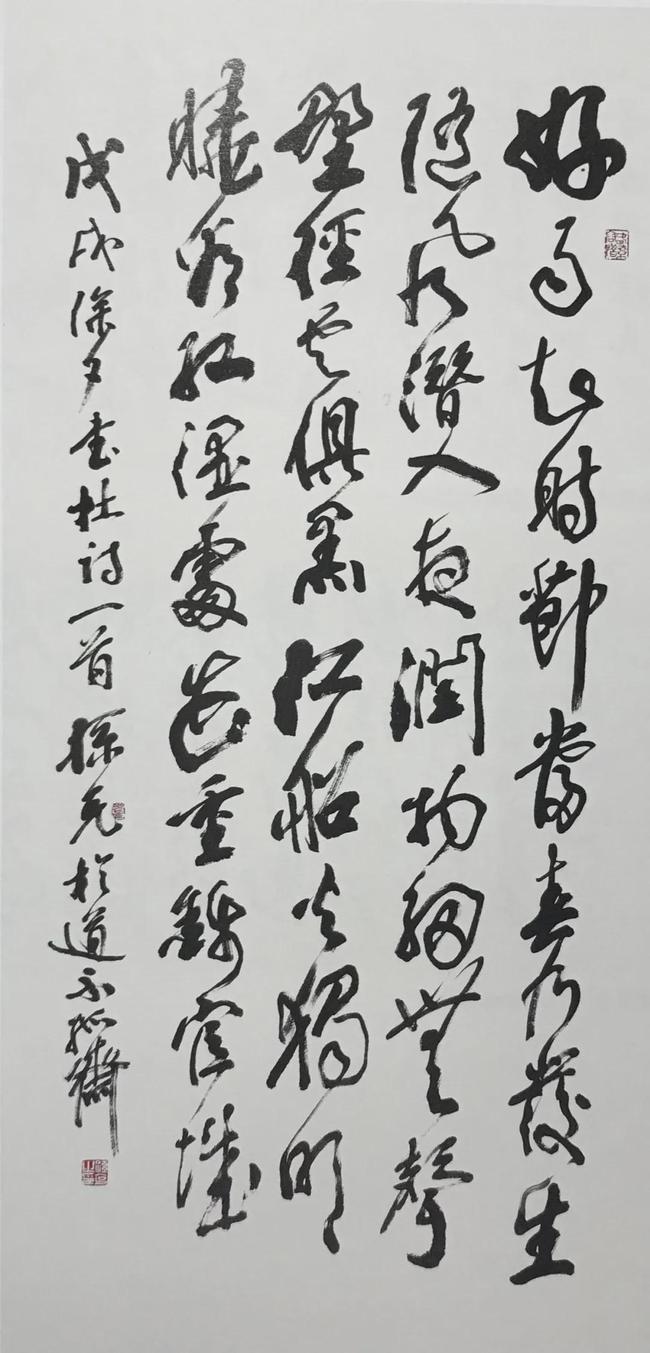 好雨知時節當春乃發生
隨風潛入夜潤物細無聲
野徑云俱黑江船火獨明
曉看紅溼處花重錦官城
戊戌除夕書杜詩一首於道不孤齋